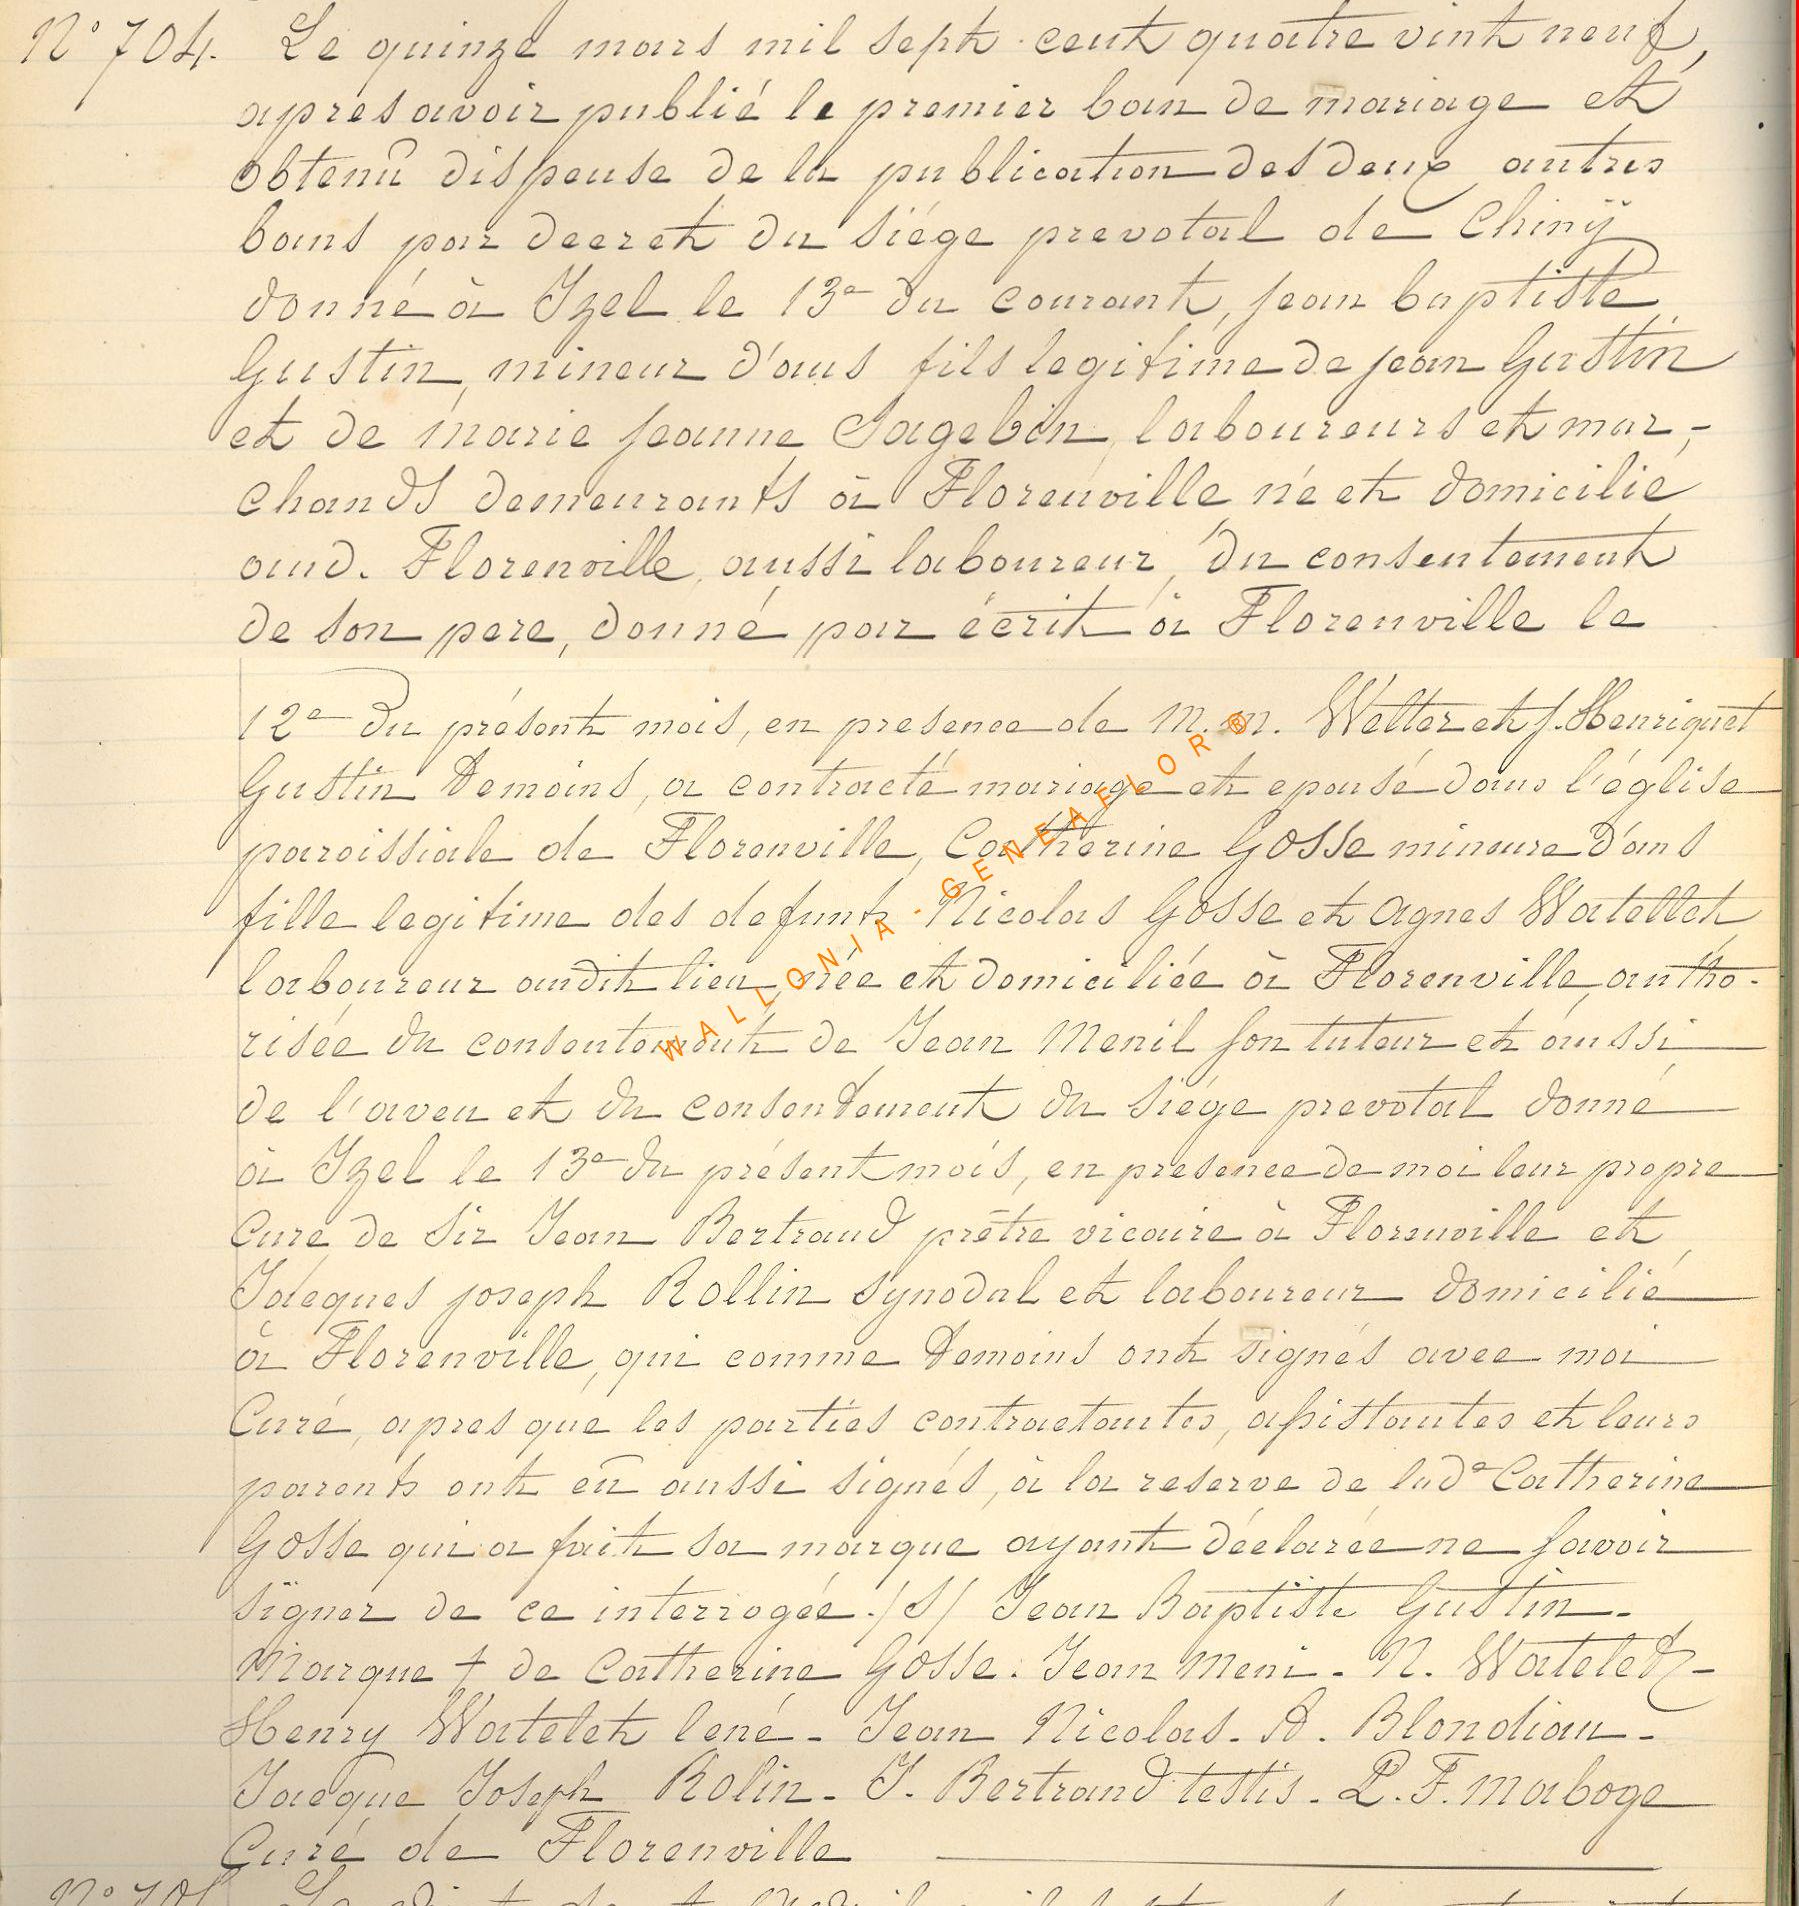 N° 704. Le quinze mars mil sept cent quatre vint neuf,
apres avoir publié le premier ban de mariage et
obtenû dispense de la publication des deux autres
bans par decret du siége prevotal de Chinÿ
donné à Izel le 13e du courant, jean baptiste
Gustin, mineur d'ans fils legitime de jean Gustin
et de marie jeanne Sagebin, laboureurs et mar-
chands demeurants à Florenville né et domicilié
aud. Florenville, aussi laboureur, du consentement
de son pere, donné par écrit à Florenville le
12e du présent mois, en presence de M.m. Welter et J. Henriquet
Gustin temoins, a contracté mariage et epousé dans l'église
paroissiale de Florenville, Catherine Gosse mineure d'ans
fille legitime des defunt Nicolas Gosse et Agnes Watellet
laboureur audit lieu, née et domiciliée à Florenville, autho-
risée du consentement de Jean Menil son tuteur et aussi
de l'aveu et du consentement du siége prevotal donné
à Izel le 13e du présent mois, en presence de moi leur propre
Curé de Sir Jean Bertrand prêtre vicaire à Florenville et
Jacques joseph Rollin synodal et laboureur domicilié
à Florenville, qui comme temoins ont signés avec moi
Curé, apres que les parties contractantes, assistantes et leurs
parents ont eû aussi signés, à la reserve de lade Catherine
Gosse qui a fait sa marque ayant déclarée ne savoir
sïgner de ce interrogée. /S/ Jean Baptiste Gustin.
Marque † de Catherine Gosse. Jean Meni - N. Watelet -
Henry Watelet lené - Jean Nicolas - A. Blondiau -
Jacque Joseph Rolin - J. Bertrand testis - P. F. Maboge
Curé de Florenville
WALLONIA - GENEAFLOR ®